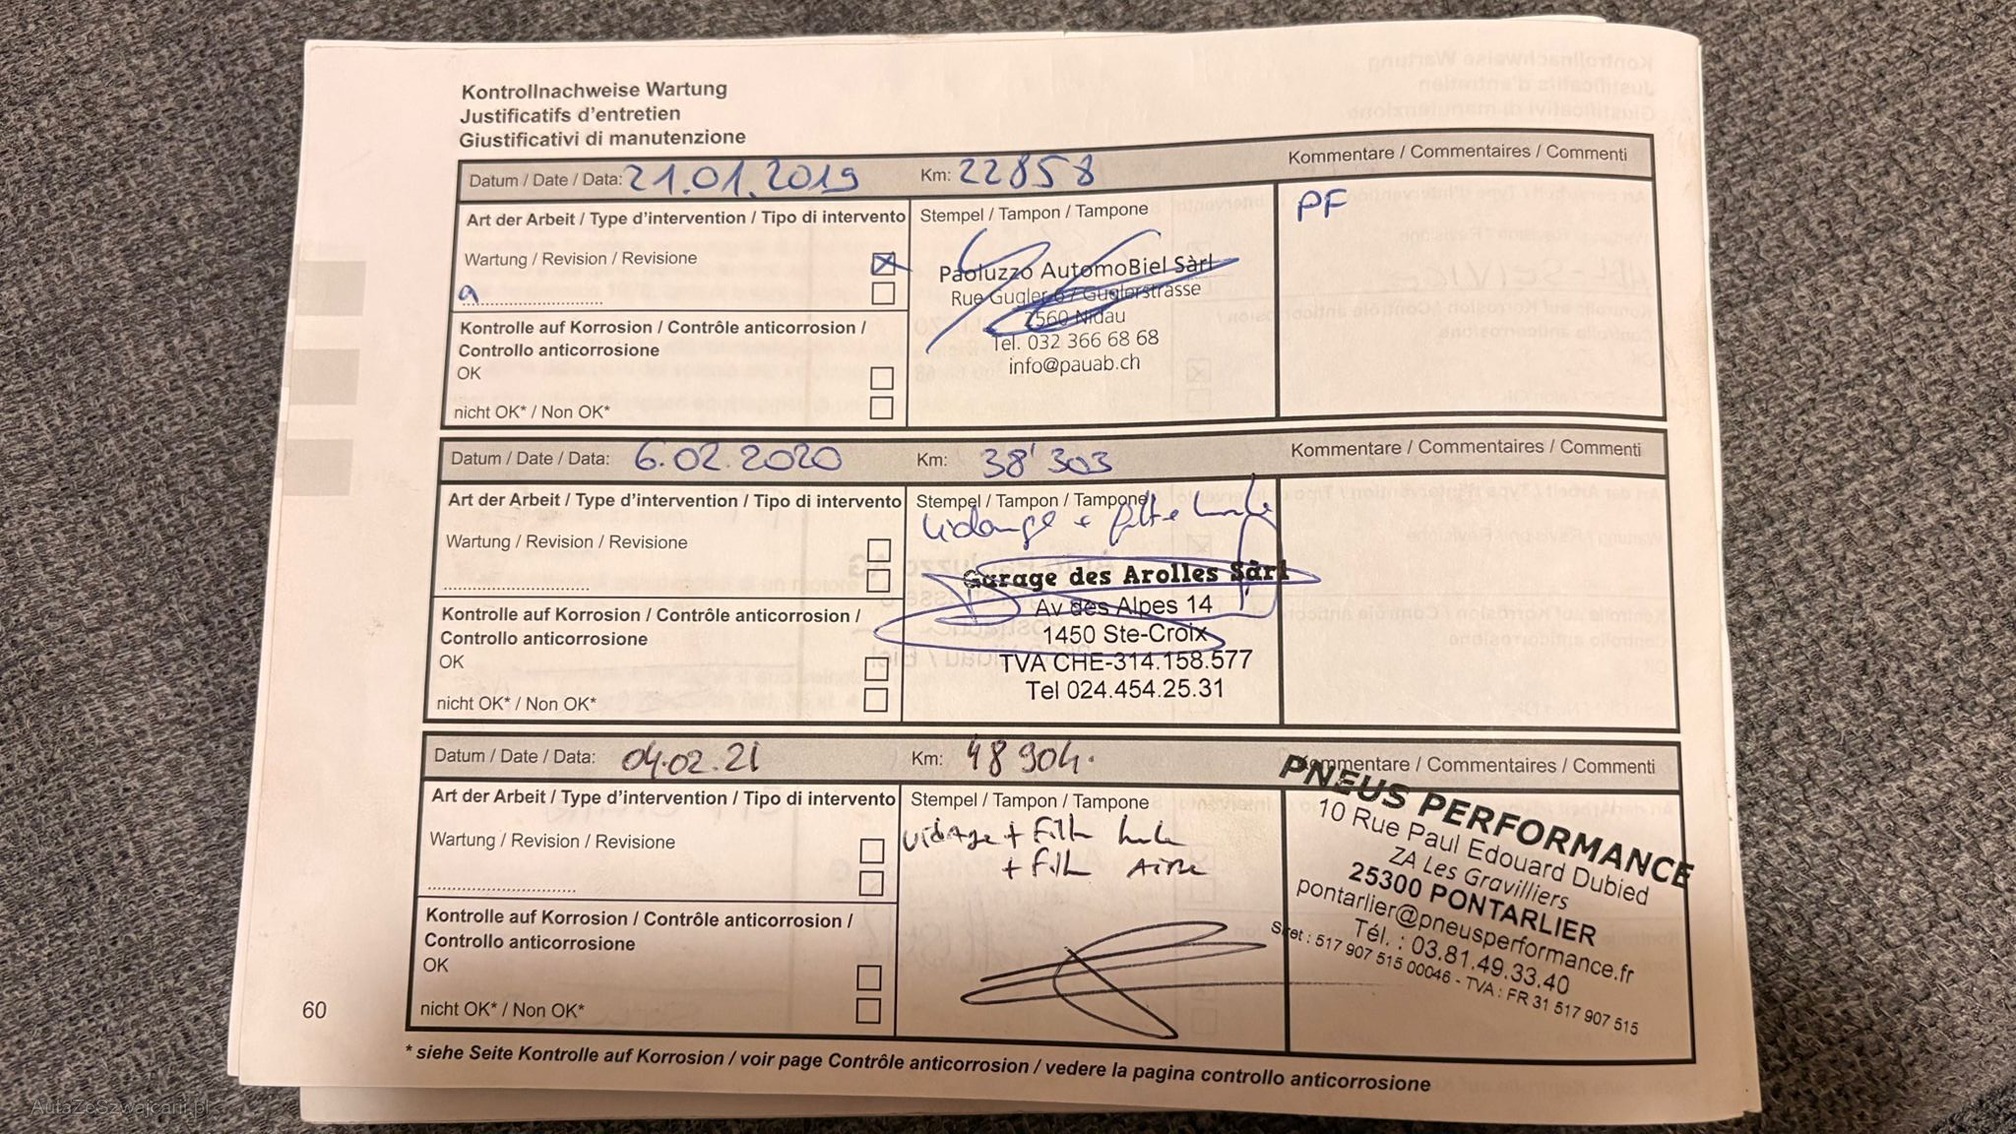 Kontrollnachweise Wartung
Justificatifs d'entretien
Giustificativi di manutenzione
Datum / Date / Data: 21.01.2019 Km: 22858 Kommentare / Commentaires / Commenti
Art der Arbeit / Type d'intervention / Tipo di intervento Stempel / Tampon / Tampone PF
Wartung / Revision / Revisione
a
Paoluzzo AutomoBiel Sàrl
Rue Gugler 6 / Guglerstrasse
2560 Nidau
Tel. 032 366 68 68
info@pauab.ch
Kontrolle auf Korrosion / Contrôle anticorrosion /
Controllo anticorrosione
OK
nicht OK* / Non OK*
Datum / Date / Data: 6.02.2020 Km: 38'303 Kommentare / Commentaires / Commenti
Art der Arbeit / Type d'intervention / Tipo di intervento Stempel / Tampon / Tampone
vidange + filtre huile
Wartung / Revision / Revisione
Garage des Arolles Sàrl
Av des Alpes 14
1450 Ste-Croix
TVA CHE-314.158.577
Tel 024.454.25.31
Kontrolle auf Korrosion / Contrôle anticorrosion /
Controllo anticorrosione
OK
nicht OK* / Non OK*
Datum / Date / Data: 04.02.21 Km: 48 904. Kommentare / Commentaires / Commenti
Art der Arbeit / Type d'intervention / Tipo di intervento Stempel / Tampon / Tampone
vidange + filtre huile
+ filtre
Wartung / Revision / Revisione
PNEUS PERFORMANCE
10 Rue Paul Edouard Dubied
ZA Les Gravilliers
25300 PONTARLIER
pontarlier@pneusperformance.fr
Tél. : 03.81.49.33.40
Siret : 517 907 515 00046 - TVA : FR 31 517 907 515
Kontrolle auf Korrosion / Contrôle anticorrosion /
Controllo anticorrosione
OK
nicht OK* / Non OK*
60
* siehe Seite Kontrolle auf Korrosion / voir page Contrôle anticorrosion / vedere la pagina controllo anticorrosione
AutaZeSzwajcarii.pl